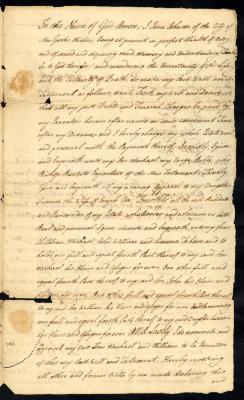 In the Name of God Amen, I Jane Lahawn of the City of
New York Widow being at present in perfect Health of Body
and of sound and disposing mind memory and understanding Thanks
be to God therefor and considering the Uncertainty of this Life
and the Certainty of Death Do make my last Will and
Testament as follows, which First my Will and Desire is
that all my just Debts and Funeral Charges be paid by
my Executors herein after named in some convenient Time
after my Decease and I hereby charge my whole Estate real
and personal with the Payment thereof, Secondly I give
and bequeath unto my Son Michael my large Bible
Bishop Expositions of the New Testament, Thirdly
I give and bequeath all my wearing Apparel to my Daughter
Susanna the Wife of Fourthly all the rest Residue
and Remainder of my Estate whatsoever and wheresoever both
Real and personal I give devise and bequeath unto my four
Children Michael John William and Susanna to
hold one full and equal fourth Part thereof to my said Son
Michael his Heirs and Assigns forever One other full and
equal fourth Part thereof to my said Son John his Heirs and
Assigns for ever One other full and equal fourth Part thereof
to my said Son William his Heirs and Assigns for ever and the remaining
one full and equal fourth Part thereof to my said Daughter Susanna
her Heirs and Assigns forever And Lastly I do nominate and
appoint my two Sons Michael and William to be Executors
of this my last Will and Testament, Hereby revoking
all other and former Wills by me made declaring this